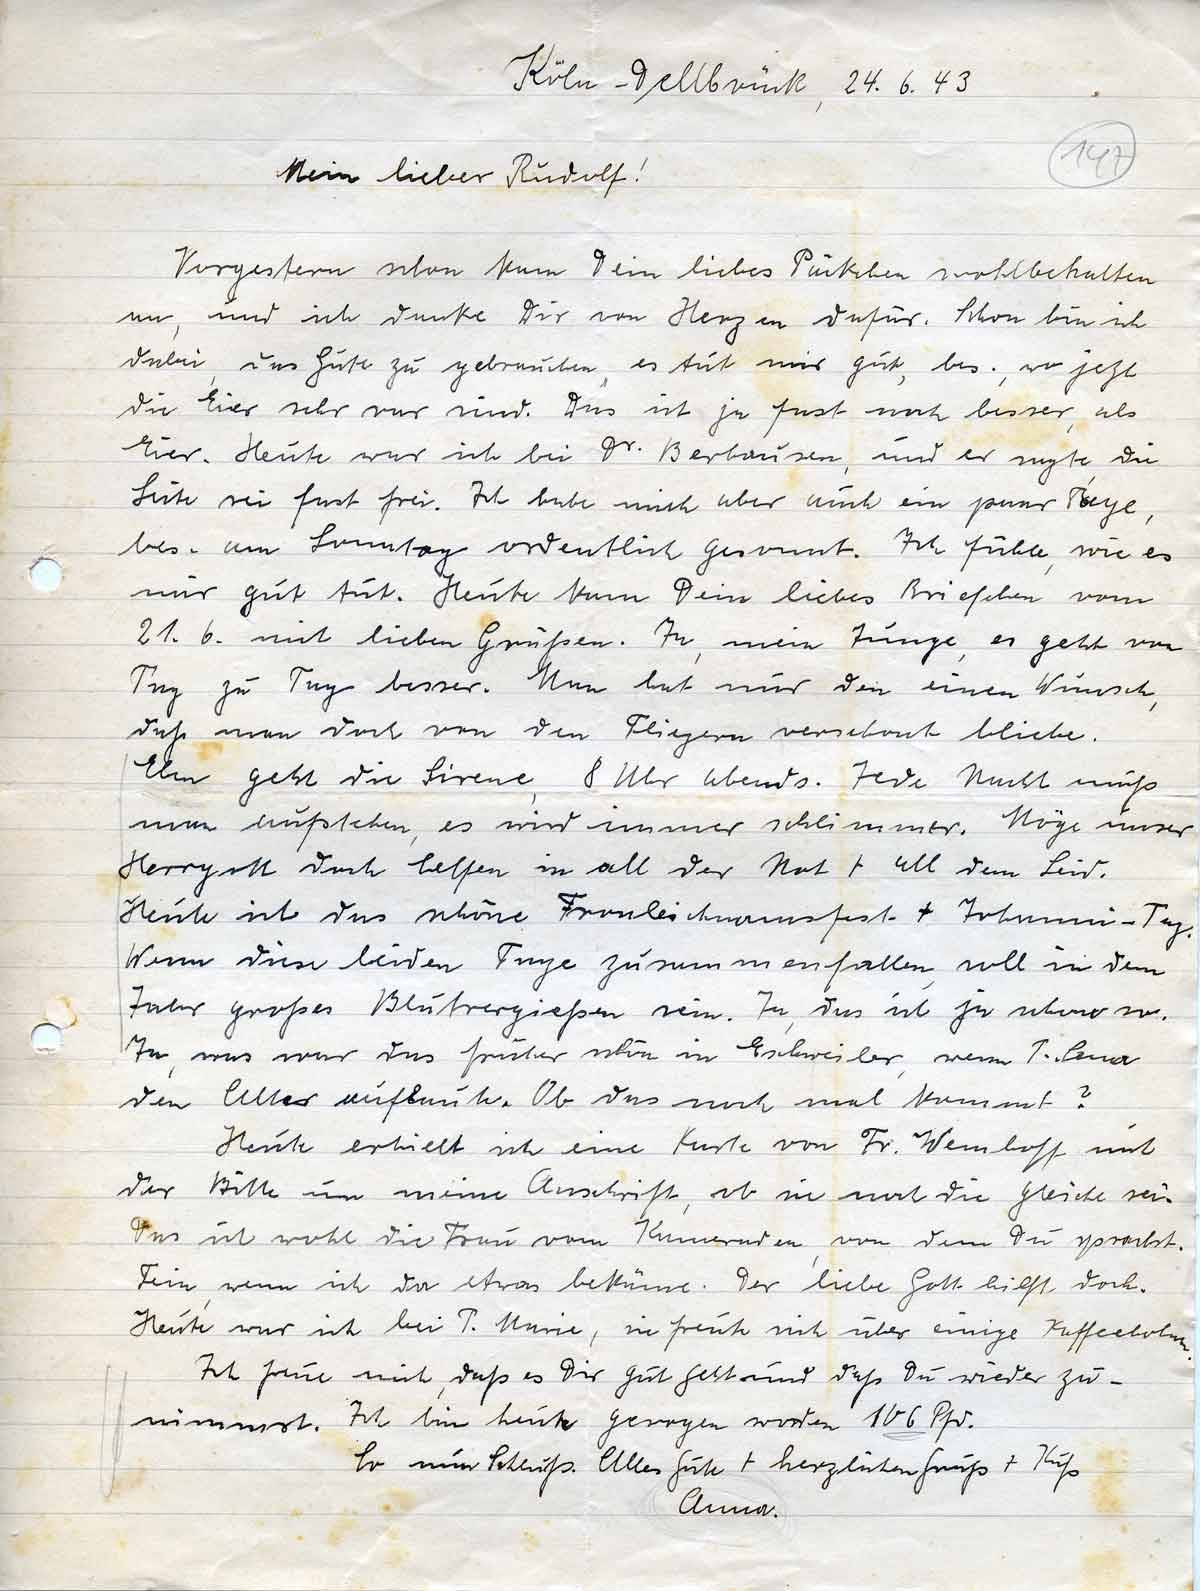 Köln-Dellbrück, 24. 6. 43
147
Mein lieber Rudolf!
Vorgestern schon kam Dein liebes Päckchen wohlbehalten
an, und ich danke Dir von Herzen dafür. Schon bin ich
dabei, das Gute zu gebrauchen, es tut mir gut, bes., wo jetzt
die Eier sehr rar sind. Das ist ja fast noch besser, als
Eier. Heute war ich bei Dr. Berhausen, und er sagte, die
Seite sei fast frei. Ich habe mich aber auch ein paar Tage,
bes. am Sonntag ordentlich gesonnt. Ich fühle, wie es
mir gut tut. Heute kam Dein liebes Briefchen vom
21. 6. mit lieben Grüßen. Ja, mein Junge, es geht von
Tag zu Tag besser. Man hat nur den einen Wunsch,
daß man doch von den Fliegern verschont bliebe.
Eben geht die Sirene, 8 Uhr abends. Jede Nacht muß
man aufstehen, es wird immer schlimmer. Möge unser
Herrgott doch helfen in all der Not + all dem Leid.
Heute ist das schöne Fronleichnamsfest + Johanni-Tag.
Wenn diese beiden Tage zusammenfallen, soll in dem
Jahr großes Blutvergießen sein. Ja, das ist ja schon so.
Ja, was war das früher schön in Eschweiler, wenn T. Lena
den Altar aufbaute. Ob das noch mal kommt?
Heute erhielt ich eine Karte von Fr. Wemhoff mit
der Bitte um meine Anschrift, ob sie noch die gleiche sei.
Das ist wohl die Frau vom Kameraden, von dem Du sprachst.
Fein, wenn ich da etwas bekäme. Der liebe Gott hilft doch.
Heute war ich bei T. Marie, sie freute sich über einige Kaffeebohnen.
Ich freue mich, daß es Dir gut geht und daß Du wieder zu-
nimmst. Ich bin heute gewogen worden 106 Pfd.
So nun Schluß. Alles Gute + herzlichen Gruß + Kuß
Anna.